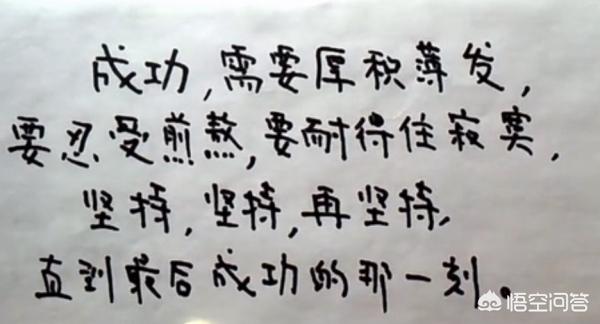 成功,需要厚积薄发,
要忍受煎熬,要耐得住寂寞,
坚持,坚持,再坚持,
直到最后成功的那一刻。
悟空问答